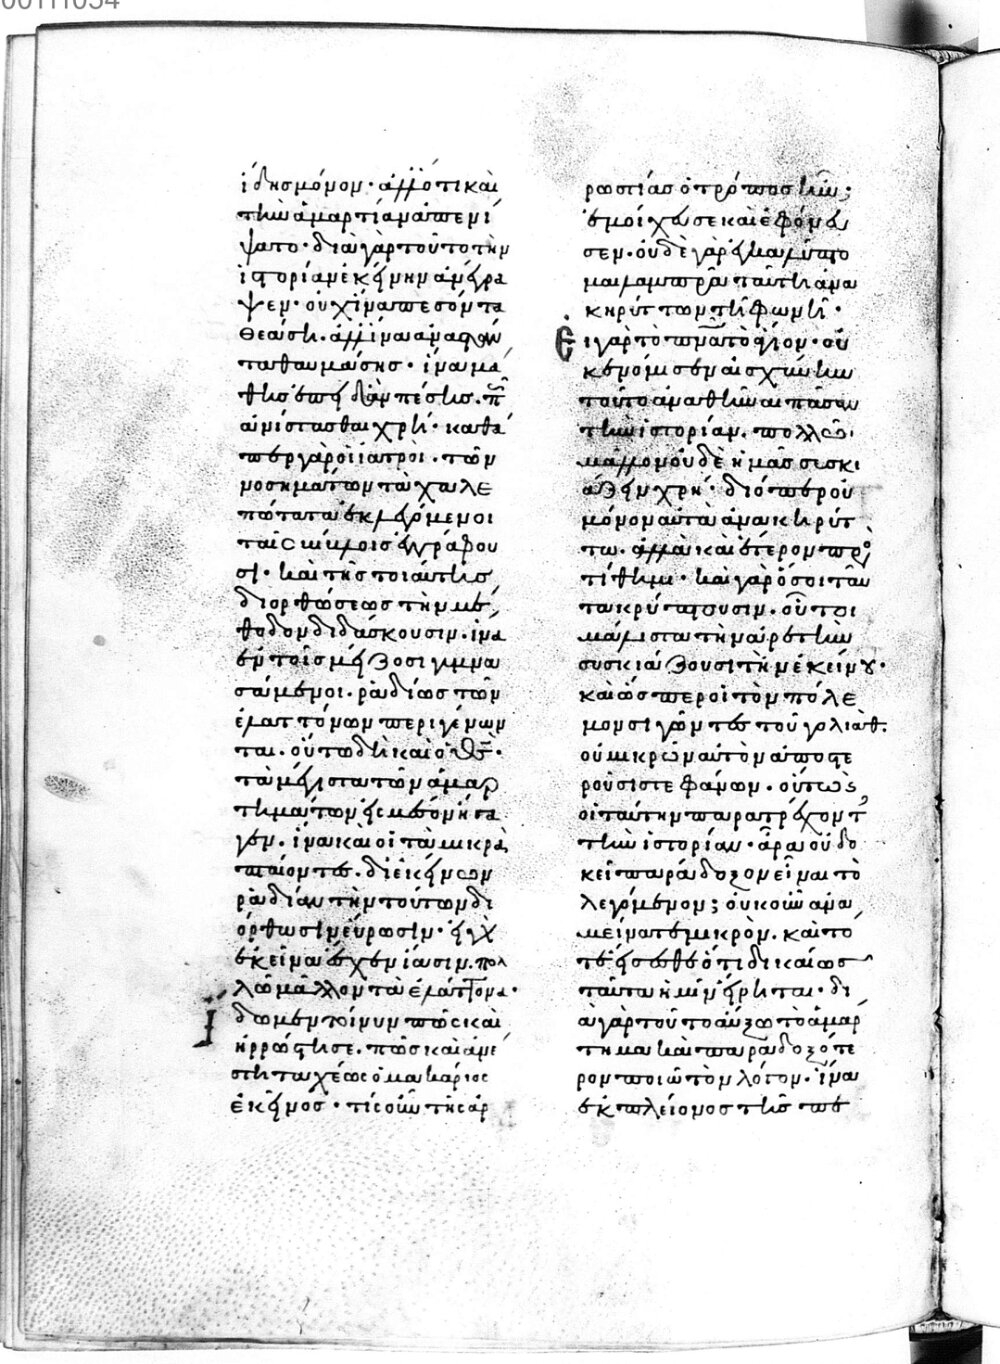 ἴδῃς μόνον· ἀλλ' ὅτι καὶ
τὴν ἁμαρτίαν ἀπενί
ψατο· διὰ γὰρ τοῦτο τὴν
ἱστορίαν ἐκείνην ἀνέγρα
ψεν· οὐχ ἵνα πεσόντα
θεάσῃ. ἀλλ' ἵνα ἀναστάν
τα θαυμάσῃς· ἵνα μά
θῃς ἐπειδὰν πέσῃς. πῶς
ἀνίστασθαι χρή· καθά
περ γὰρ οἱ ἰατροὶ. τῶν
νοσημάτων τὰ χαλε
πώτατα ἐκλεγόμενοι
ταῖς βίβλοις ἐγγράφου
σι· καὶ τῆς τοιαύτης
διορθώσεως τὴν μέ
θοδον διδάσκουσιν. ἵνα
ἐν τοῖς μείζοσι γυμνα
σάμενοι. ῥαδίως τῶν
ἐλαττόνων περιγένων
ται. οὕτω δὴ καὶ ὁ θς̄·
τὰ μέγιστα τῶν ἁμαρ
τημάτων εἰς μέσον ἤγα
γεν. ἵνα καὶ οἱ τὰ μικρὰ
πταίοντες. δι' ἐκείνων
ῥαδίαν τὴν τούτων δι
όρθωσιν εὕρωσιν· εἰ γὰρ
ἐκεῖνα ἔσχεν ἴασιν. πολ
λῶ μᾶλλον τὰ ἐλάττονα·
Ἴδωμεν τοίνυν πῶς καὶ
ἠρρώστησε. πῶς καὶ ἀνέ
στη ταχέως ὁ μακάριος
ἐκεῖνος· τίς οὖν τῆς ἀρ
ρωστίας ὁ τρόπος ἦν;
ἐμοίχευσε καὶ ἐφόνευ
σεν. οὐδὲ γὰρ αἰσχύνο
μαι λαμπρᾶ ταῦτα ἀνα
κηρύττων τῆ φωνῆ·
Εἰ γὰρ τὸ πνα τὸ ἅγιον. οὐ
κ ἐνόμισεν αἰσχύνην
τοῦτο ἀναθεῖναι πᾶσαν
τὴν ἱστορίαν. πολλῶ
μᾶλλον οὐδὲ ἡμᾶς συσκι
άζειν χρή· διόπερ οὐ
μόνον αὐτὰ ἀνακηρύτ
τω. ἀλλὰ καὶ ἕτερον προσ
τίθημι· καὶ γὰρ ὅσοι ταῦ
τα κρύπτουσιν. οὗτοι
μάλιστα τὴν ἀρετὴν
συσκιάζουσι τὴν ἐκείνου·
καὶ ὥσπερ οἱ τὸν πόλε
μον σιγῶντες τοῦ γολιάθ.
οὐ μικρῶν αὐτὸν ἀποστε
ροῦσι στεφάνων. οὕτως
οἱ ταύτην παρατρέχοντες
τὴν ἱστορίαν. ἆρα οὐ δο
κεῖ παράδοξον εἶναι τὸ
λεγόμενον; οὐκοῦν ἀνα
μείνατε μικρὸν. καὶ τό
τε εἴσεσθε ὅτι δικαίως
ταῦτα ἡμῖν εἴρηται· δι
ὰ γὰρ τοῦτο αὔξω τὸ ἁμάρ
τημα καὶ παραδοξότε
ρον ποιῶ τὸν λόγον. ἵνα
ἐκ πλείονος τῆς πε